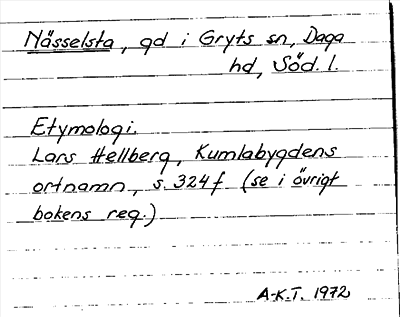 Nässelsta, gd i Gryts sn, Daga
hd, Söd. l.
Etymologi.
Lars Hellberg, Kumlabygdens
ortnamn, s. 324 f (se i övrigt
bokens reg.)
A-K.T. 1972